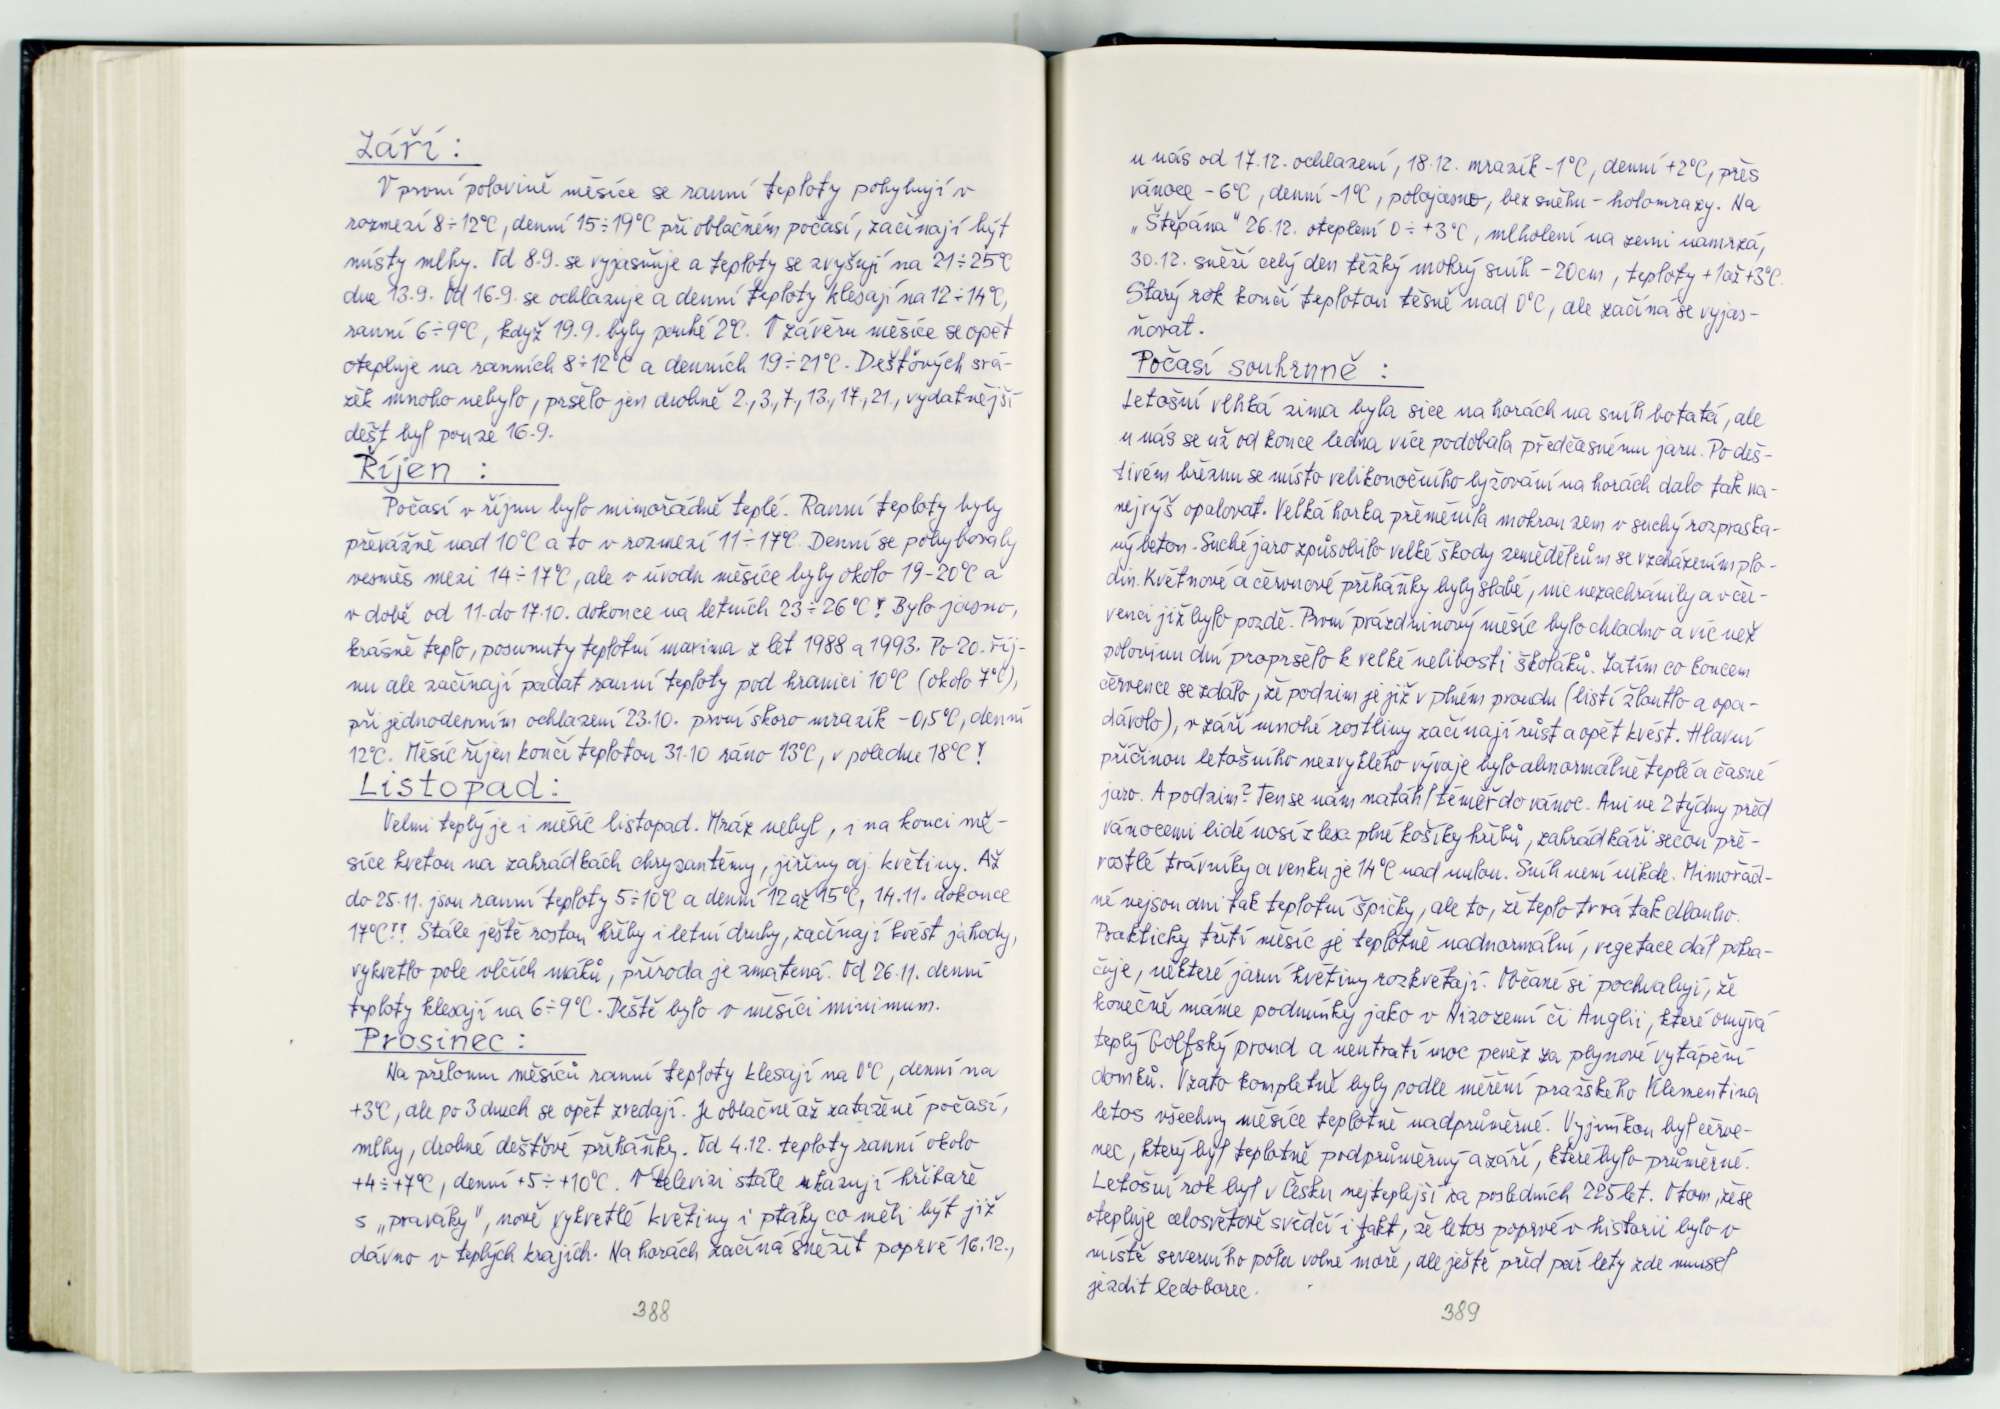 Září :
V první polovině měsíce se ranní teploty pohybují v
rozmezí 8÷12°C, denní 15÷19°C při oblačném počasí, začínají být
místy mlhy. Od 8.9. se vyjasňuje a teploty se zvyšují na 21÷25°C
dne 13.9. Od 16.9. se ochlazuje a denní teploty klesají na 12÷14°C,
ranní 6÷9°C, když 19.9. byly pouhé 2°C. V závěru měsíce se opět
otepluje na ranních 8÷12°C a denních 19÷21°C. Dešťových srá-
žek mnoho nebylo, pršelo jen drobně 2., 3., 7., 13., 17., 21., vydatnější
déšť byl pouze 16.9.
Říjen :
Počasí v říjnu bylo mimořádně teplé. Ranní teploty byly
převážně nad 10°C a to v rozmezí 11÷17°C. Denní se pohybovaly
vesměs mezi 14÷17°C, ale v úvodu měsíce byly okolo 19-20°C a
v době od 11. do 17.10. dokonce na letních 23÷26°C! Bylo jasno,
krásně teplo, posunuty teplotní maxima z let 1988 a 1993. Po 20. říj-
nu ale začínají padat ranní teploty pod hranici 10°C (okolo 7°C),
při jednodenním ochlazení 23.10. první skoro mrazík -0,5°C, denní
12°C. Měsíc říjen končí teplotou 31.10 ráno 13°C, v poledne 18°C!
Listopad :
Velmi teplý je i měsíc listopad. Mráz nebyl, i na konci mě-
síce kvetou na zahrádkách chryzantémy, jiřiny aj. květiny. Až
do 25.11. jsou ranní teploty 5÷10°C a denní 12 až 15°C, 14.11. dokonce
17°C!! Stále ještě rostou hřiby i letní druhy, začínají kvést jahody,
vykvetlo pole vlčích máků, příroda je zmatená. Od 26.11. denní
teploty klesají na 6÷9°C. Deště bylo v měsíci minimum.
Prosinec :
Na přelomu měsíců ranní teploty klesají na 0°C, denní na
+3°C, ale po 3 dnech se opět zvedají. Je oblačné až zatažené počasí,
mlhy, drobné dešťové přeháňky. Od 4.12. teploty ranní okolo
+4÷+7°C, denní +5÷+10°C. V televizi stále ukazují hřibaře
s „praváky", nově vykvetlé květiny i ptáky co měli být již
dávno v teplých krajích. Na horách začíná sněžit poprvé 16.12.,
388
u nás od 17.12. ochlazení, 18.12. mrazík -1°C, denní +2°C, přes
vánoce -6°C, denní -1°C, polojasno, bez sněhu - holomrazy. Na
„Štěpána" 26.12. oteplení 0÷+3°C, mlholení na zemi namrzá,
30.12. sněží celý den těžký mokrý sníh -20cm, teploty +1až+3°C.
Starý rok končí teplotou těsně nad 0°C, ale začíná se vyjas-
ňovat.
Počasí souhrnně :
Letošní vlhká zima byla sice na horách na sníh bohatá, ale
u nás se už od konce ledna více podobala předčasnému jaru. Po deš-
tivém březnu se místo velikonočního lyžování na horách dalo tak na-
nejvýš opalovat. Velká horka přeměnila mokrou zem v suchý rozpraska-
ný beton. Suché jaro způsobilo velké škody zemědělcům se vzcházením plo-
din. Květnové a červnové přeháňky byly slabé, nic nezachránily a v čer-
venci již bylo pozdě. První prázdninový měsíc bylo chladno a víc než
polovinu dní propršelo k velké nelibosti školáků. Zatím co koncem
července se zdálo, že podzim je již v plném proudu (listí žloutlo a opa-
dávalo), v září mnohé rostliny začínají růst a opět kvést. Hlavní
příčinou letošního nezvyklého vývoje bylo abnormálně teplé a časné
jaro. A podzim? Ten se nám natáhl téměř do vánoc. Ani ne 2 týdny před
vánocemi lidé nosí z lesa plné košíky hřibů, zahrádkáři sečou pře-
rostlé trávníky a venku je 14°C nad nulou. Sníh není nikde. Mimořád-
né nejsou dni tak teplotní špičky, ale to, že teplo trvá tak dlouho.
Prakticky třetí měsíc je teplotně nadnormální, vegetace dál pokra-
čuje, některé jarní květiny rozkvétají. Občané si pochvalují, že
konečně máme podmínky jako v Nizozemí či Anglii, které omývá
teplý Golfský proud a neutratí moc peněz za plynové vytápění
domků. Vzato kompletně byly podle měření pražského Klementina
letos všechny měsíce teplotně nadprůměrné. Vyjímkou byl červe-
nec, který byl teplotně podprůměrný a září, které bylo průměrné.
Letošní rok byl v Česku nejteplejší za posledních 225 let. O tom, že se
otepluje celosvětově svědčí i fakt, že letos poprvé v historii bylo v
místě severního pólu volné moře, ale ještě před pár lety zde musel
jezdit ledoborec.
389